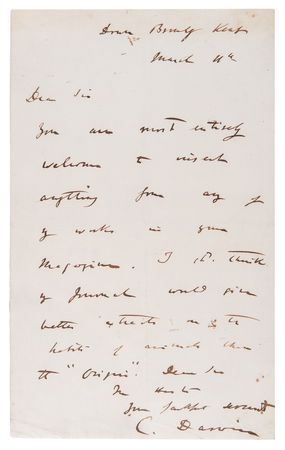 Down Bromley Kent
March 11th
Dear Sir
You are most entirely
welcome to insert
anything from any of
my works in your
Magazine. I shd. think
my Journal would give
better extracts on the
habits of animals than
the "Origin". Dear Sir
In Haste
Your faithful servant
C. Darwin